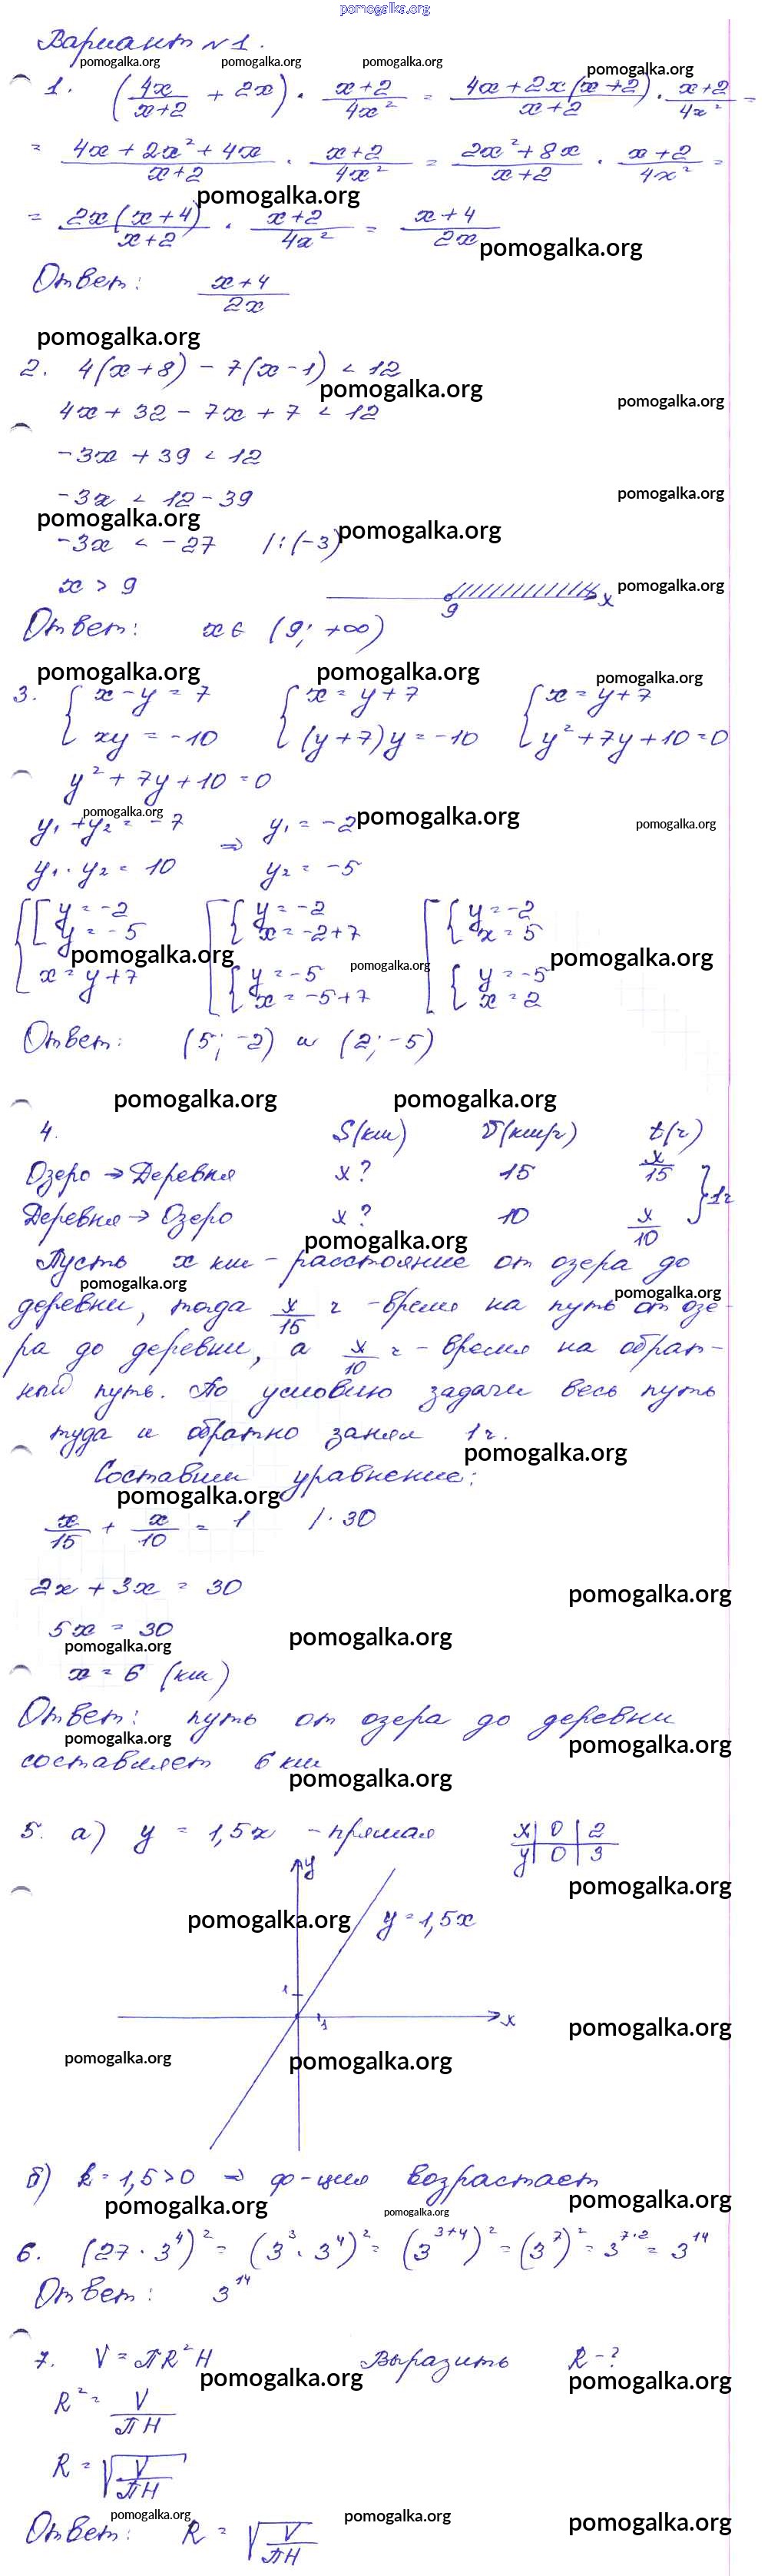 pomogalka.org
Вариант №1.
pomogalka.org pomogalka.org pomogalka.org pomogalka.org
1. (4x/(x+2) + 2x) · (x+2)/(4x²) = (4x+2x(x+2))/(x+2) · (x+2)/(4x²) =
= (4x+2x²+4x)/(x+2) · (x+2)/(4x²) = (2x²+8x)/(x+2) · (x+2)/(4x²) =
pomogalka.org
= (2x(x+4))/(x+2) · (x+2)/(4x²) = (x+4)/(2x)
pomogalka.org
Ответ: (x+4)/(2x)
pomogalka.org
2. 4(x+8) - 7(x-1) < 12
pomogalka.org pomogalka.org
4x + 32 - 7x + 7 < 12
-3x + 39 < 12
-3x < 12 - 39 pomogalka.org
pomogalka.org pomogalka.org
-3x < -27 /:(-3)
x > 9 pomogalka.org
9 x
Ответ: x∈ (9; +∞)
pomogalka.org pomogalka.org pomogalka.org
3. { x - y = 7 { x = y+7 { x = y+7
{ xy = -10 { (y+7)y = -10 { y²+7y+10=0
y²+7y+10=0
pomogalka.org pomogalka.org pomogalka.org
y₁+y₂ = -7 ⇒ y₁ = -2
y₁·y₂ = 10 y₂ = -5
{ [ y = -2 [ { y = -2 [ { y = -2
y = -5 x = -2+7 x = 5
pomogalka.org pomogalka.org pomogalka.org
x = y+7 { y = -5 { y = -5
x = -5+7 x = 2
Ответ: (5; -2) и (2; -5)
pomogalka.org pomogalka.org
4. S(км) V(км/ч) t(ч)
Озеро → Деревня x? 15 x/15 } 1ч
Деревня → Озеро x? 10 x/10
pomogalka.org
Пусть x км - расстояние от озера до
pomogalka.org pomogalka.org
деревни, тогда x/15 ч - время на путь от озе-
ра до деревни, а x/10 ч - время на обрат-
ный путь. По условию задачи весь путь
туда и обратно занял 1 ч.
pomogalka.org
Составим уравнение:
pomogalka.org
x/15 + x/10 = 1 /·30
2x + 3x = 30
pomogalka.org
5x = 30
pomogalka.org pomogalka.org
x = 6 (км)
Ответ: путь от озера до деревни
pomogalka.org pomogalka.org
составляет 6 км
pomogalka.org
5. а) y = 1,5x - прямая x 0 2
y 0 3
y
pomogalka.org
pomogalka.org y = 1,5x
1
1 x
pomogalka.org
pomogalka.org pomogalka.org
б) k = 1,5 > 0 ⇒ ф-ция возрастает
pomogalka.org pomogalka.org pomogalka.org
6. (27·3⁴)² = (3³·3⁴)² = (3³⁺⁴)² = (3⁷)² = 3⁷·² = 3¹⁴
Ответ: 3¹⁴
7. V = πR²H Выразить R-?
pomogalka.org pomogalka.org
R² = V/(πH)
R = √(V/(πH))
pomogalka.org pomogalka.org pomogalka.org
Ответ: R = √(V/(πH))